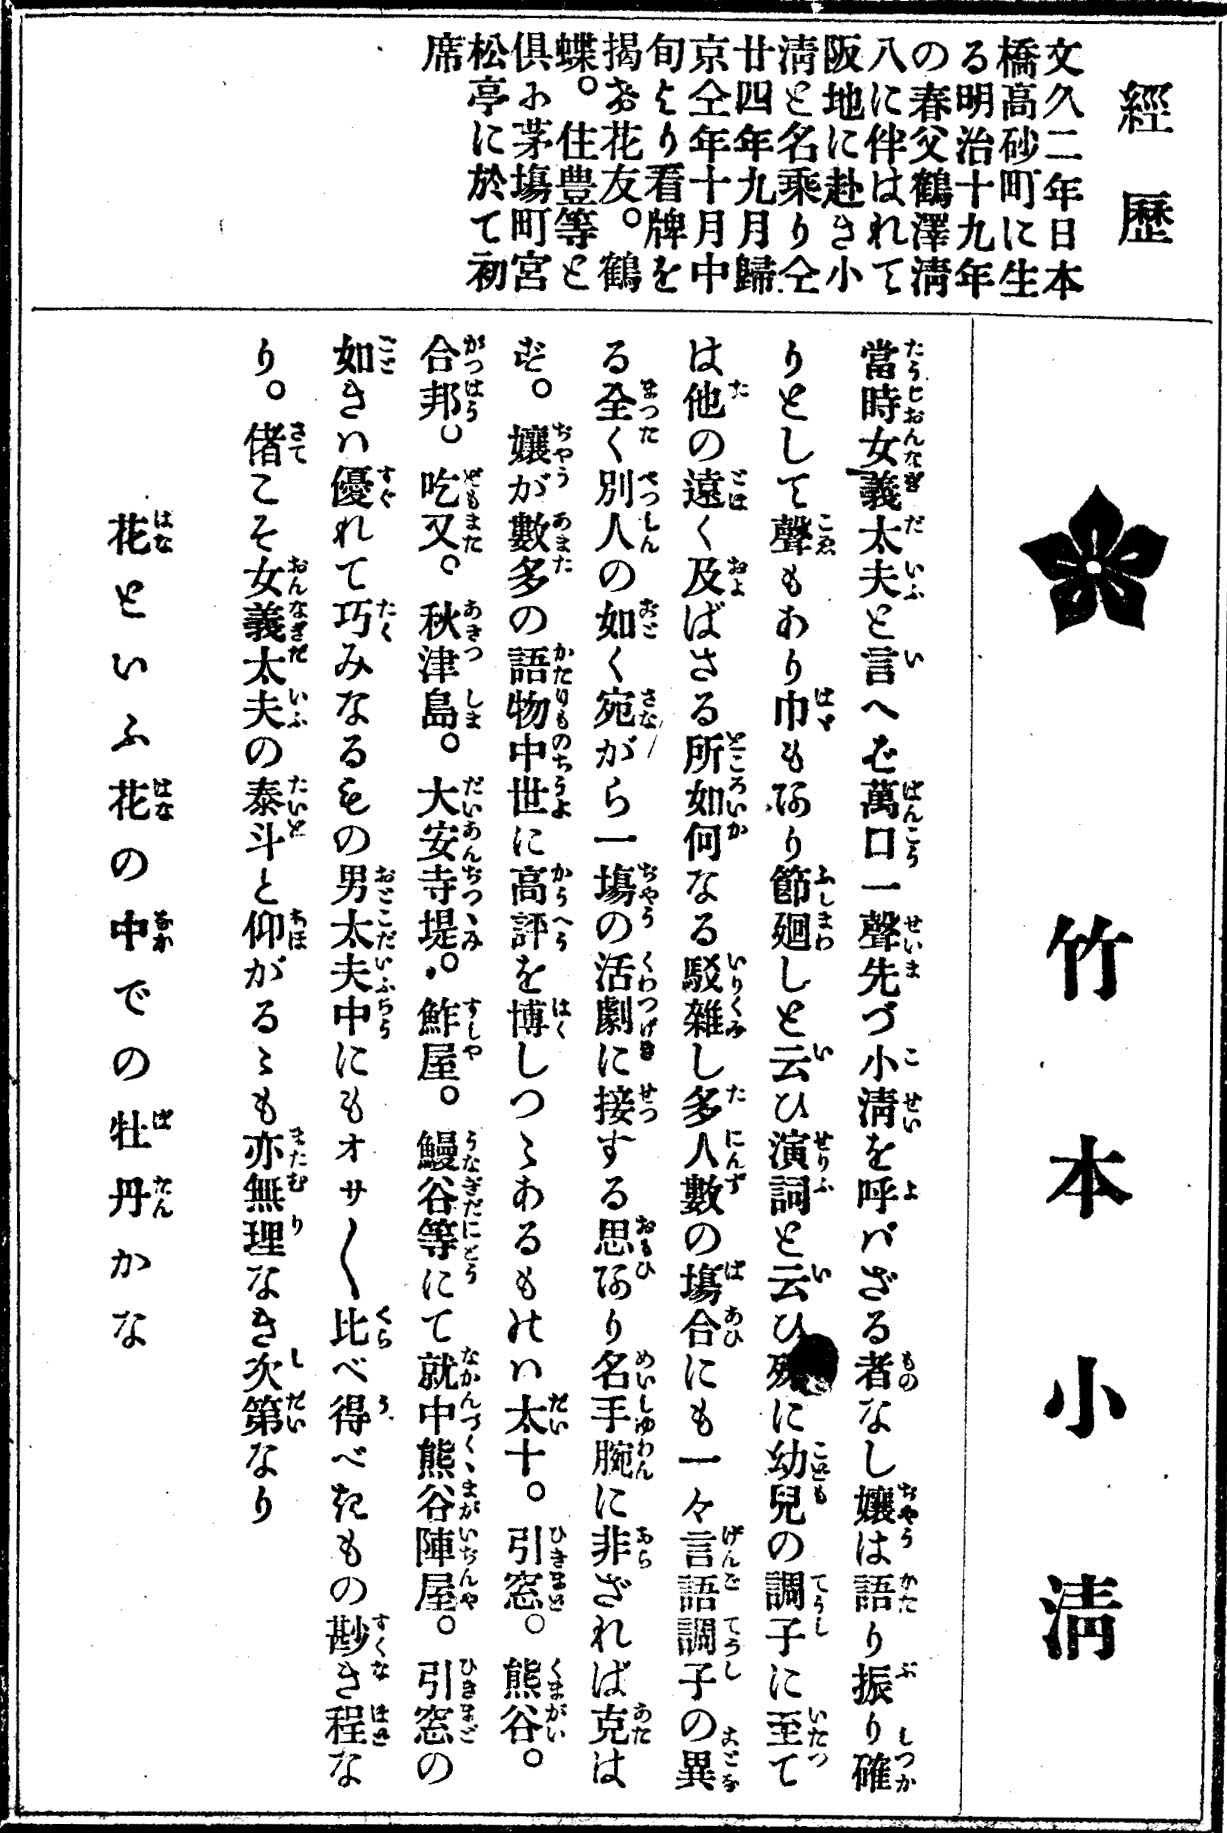 經歷
文久二年日本
橋高砂町に生
る明治十九年
の春父鶴澤淸
八に伴はれて
阪地に赴き小
淸と名乘り仝
廿四年九月歸
京仝年十月中
旬より看牌を
揭お花友。鶴
蝶。住豊等と
俱に茅塲町宮
松亭に於て初
席
竹本小淸
當時女義太夫と言へば萬口一聲先づ小淸を呼バざる者なし孃は語り振り確
りとして聲もあり巾もあり節廻しと云ひ演詞と云ひ に幼兒の調子に至て
は他の遠く及ばさる所如何なる駁雜し多人數の塲合にも一々言語調子の異
る全く別人の如く宛がら一塲の活劇に接する思あり名手腕に非ざれば克は
ず。孃が數多の語物中世に高評を博しつゝあるものハ太十。引窓。熊谷。
合邦。吃又。秋津島。大安寺堤。鮓屋。鰻谷等にて就中熊谷陣屋。引窓の
如きハ優れて巧みなるもの男太夫中にもオサ〳〵比べ得べきもの尠き程な
り。偖こそ女義太夫の泰斗と仰がるゝも亦無理なき次第なり
花といふ花の中での牡丹かな